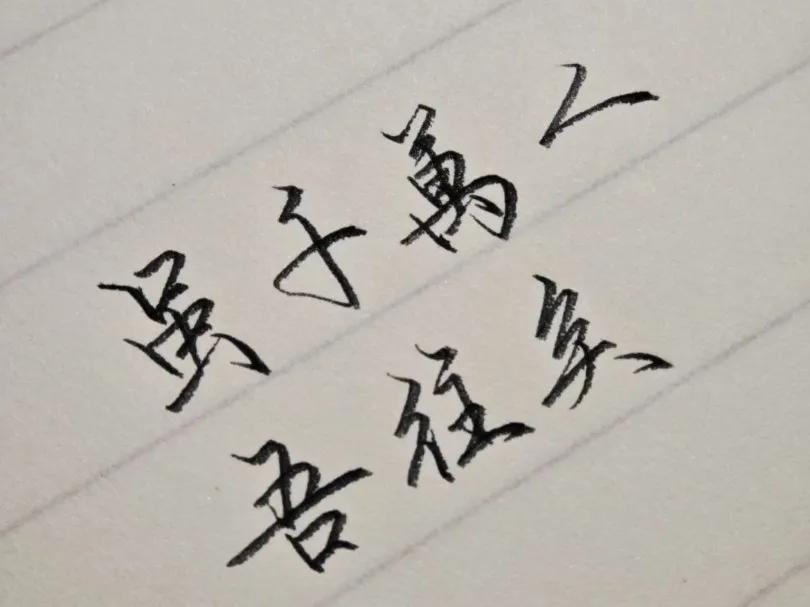 虽千萬人
吾往矣